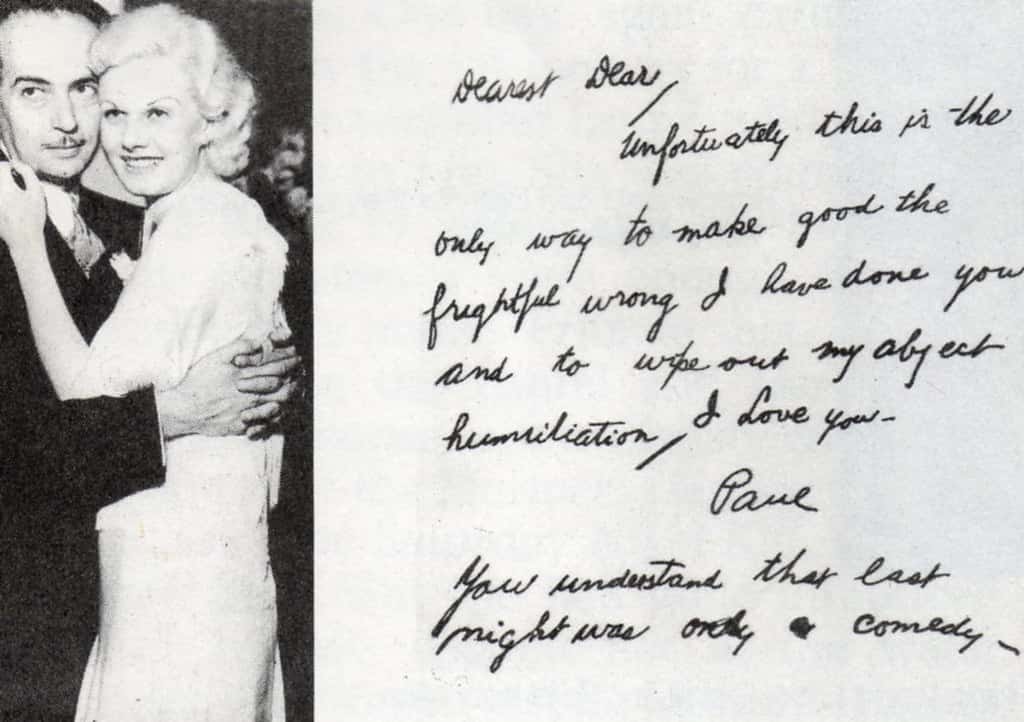 Dearest Dear,
Unfortuately this is the
only way to make good the
frightful wrong I have done you
and to wipe out my abject
humiliation, I Love you-
Paul
You understand that last
night was only a comedy-